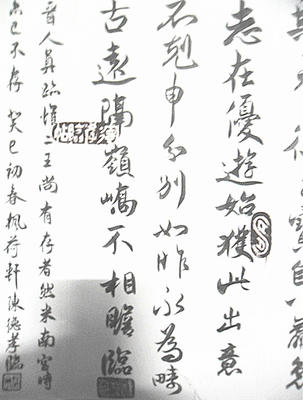 志在優遊始獲此出意
不剋申分別如昨永為疇
古遠隔嶺嶠不相瞻臨
晉人真跡惟二王尚有存者然米南宮時
亦已不存癸巳初春楓荷軒陳德孝臨